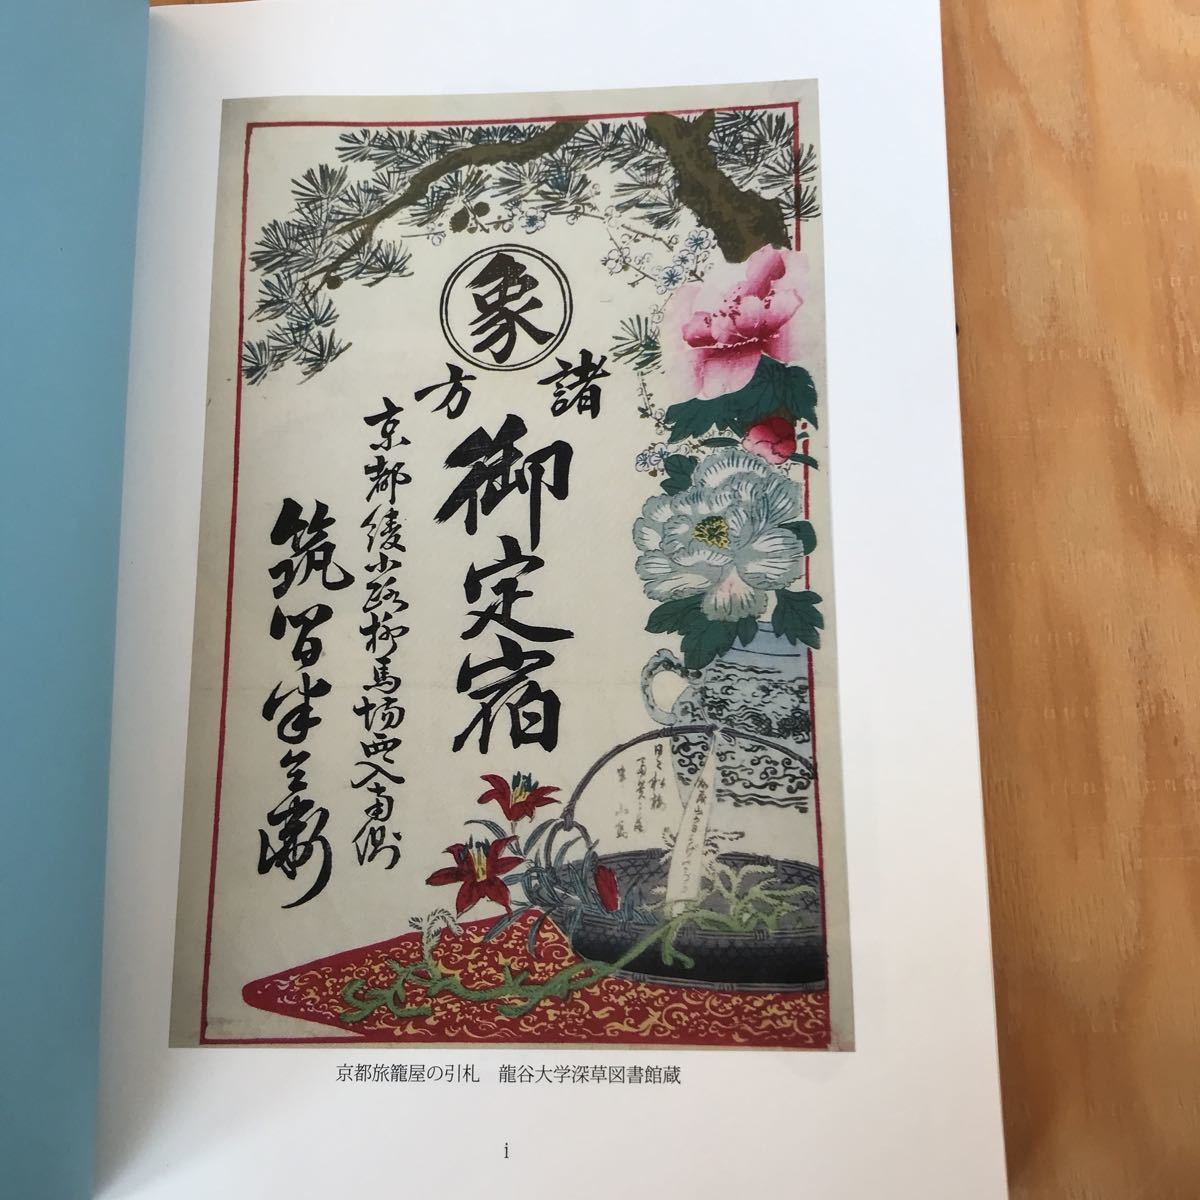 象
諸方
御定宿
京都綾小路柳馬場西入南側
筑前屋半兵衛
京都旅籠屋の引札　龍谷大学深草図書館蔵
i